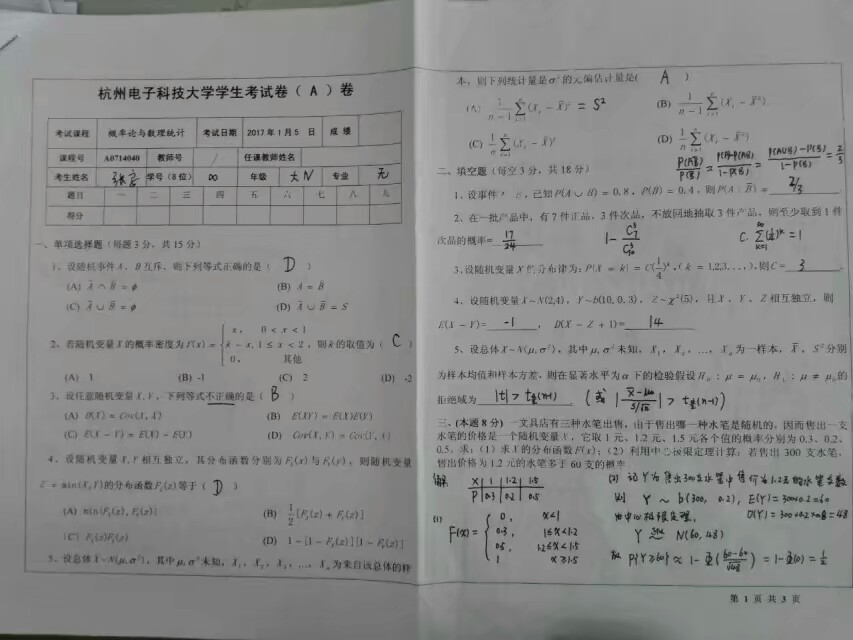 杭州电子科技大学学生考试卷（ A ）卷
考试课程 概率论与数理统计 考试日期 2017年1月5日 成绩
课程号 A0714040 教师号 / 任课教师姓名
考生姓名 学号（8位） 年级 大N 专业 无
题目 一 二 三 四 五 六 七 八 九
得分
一、单项选择题（每题3分，共15分）
1、设随机事件A、B互斥，则下列等式正确的是（ D ）
(A) Ā∩B̄=ϕ (B) A=B̄
(C) Ā∪B̄=ϕ (D) Ā∪B̄=S
2、若随机变量X的概率密度为f(x)={x, 0<x<1
k-x, 1≤x<2，则k的取值为（ C ）
0, 其他
(A) 1 (B) -1 (C) 2 (D) -2
3、设任意随机变量X,Y，下列等式不正确的是（ B ）
(A) D(X)=Cov(X,X) (B) E(XY)=E(X)E(Y)
(C) E(X-Y)=E(X)-E(Y) (D) Cov(X,Y)=Cov(Y,X)
4、设随机变量X,Y相互独立，其分布函数分别为
则随机变量
Z=min(X,Y)的分布函数F_Z(z)等于（ D ）
(B) 1/2[F_X(z)+F_Y(z)]
(C) F_X(z)F_Y(z) (D) 1-[1-F_X(z)][1-F_Y(z)]
5、设总体X~N(μ,σ²)，其中μ,σ²未知，X₁，X₂，X₃，…，Xₙ为来自该总体的样
本，则下列统计量是σ²的无偏估计量是（ A ）
= S²
二、填空题（每空3分，共18分）
P(AB̄)/P(B̄) = = P(A∪B)-P(B)/1-P(B) = 2/3
已知P(A∪B)=0.8，P(B)=0.4，则P(A|B̄)= 2/3
2、在一批产品中，有7件正品，3件次品，不放回地抽取3件产品，则至少取到1件
次品的概率= 17/24 1-C₇³/C₁₀³ C·∑(1/4)^k=1
3、设随机变量X的分布律为：P{X=k}=C(1/4)^k,(k=1,2,3,...)，则C= 3
4、设随机变量X~N(2,4)，Y~b(10,0.3)，Z~χ²(5)，且X、Y、Z相互独立，则
E(X-Y)= -1 ，D(X-Z+1)= 14
5、设总体X~N(μ,σ²)，其中μ,σ²未知，X₁，X₂，…，Xₙ为一样本，X̄，S²分别
为样本均值和样本方差，则在显著水平为α下的检验假设H₀：μ=μ₀，H₁：μ≠μ₀的
拒绝域为 |t|>t_{α/2}(n-1) (或 |X̄-μ₀/(S/√n)|>t_{α/2}(n-1))
三、（本题8分）一文具店有三种水笔出售，由于售出哪一种水笔是随机的，因而售出一支
水笔的价格是一个随机变量X，它取1元、1.2元、1.5元各个值的概率分别为0.3、0.2、
0.5。求：（1）求X的分布函数F(x)；（2）利用中心极限定理计算：若售出300支水笔，
售出价格为1.2元的水笔多于60支的概率
解 X 1 1.2 1.5
P 0.3 0.2 0.5
(1) F(x)={0, x<1
0.3, 1≤x<1.2
0.5, 1.2≤x<1.5
1 x≥1.5
(2) 记Y为售出300支水笔中售价为1.2元的水笔支数
则 Y~b(300, 0.2), E(Y)=300×0.2=60
由中心极限定理, D(Y)=300×0.2×0.8=48
Y N(60,48)
故 P{Y≥60}≈1-Φ(60-60/√48)=1-Φ(0)=1/2
第 1 页 共 3 页